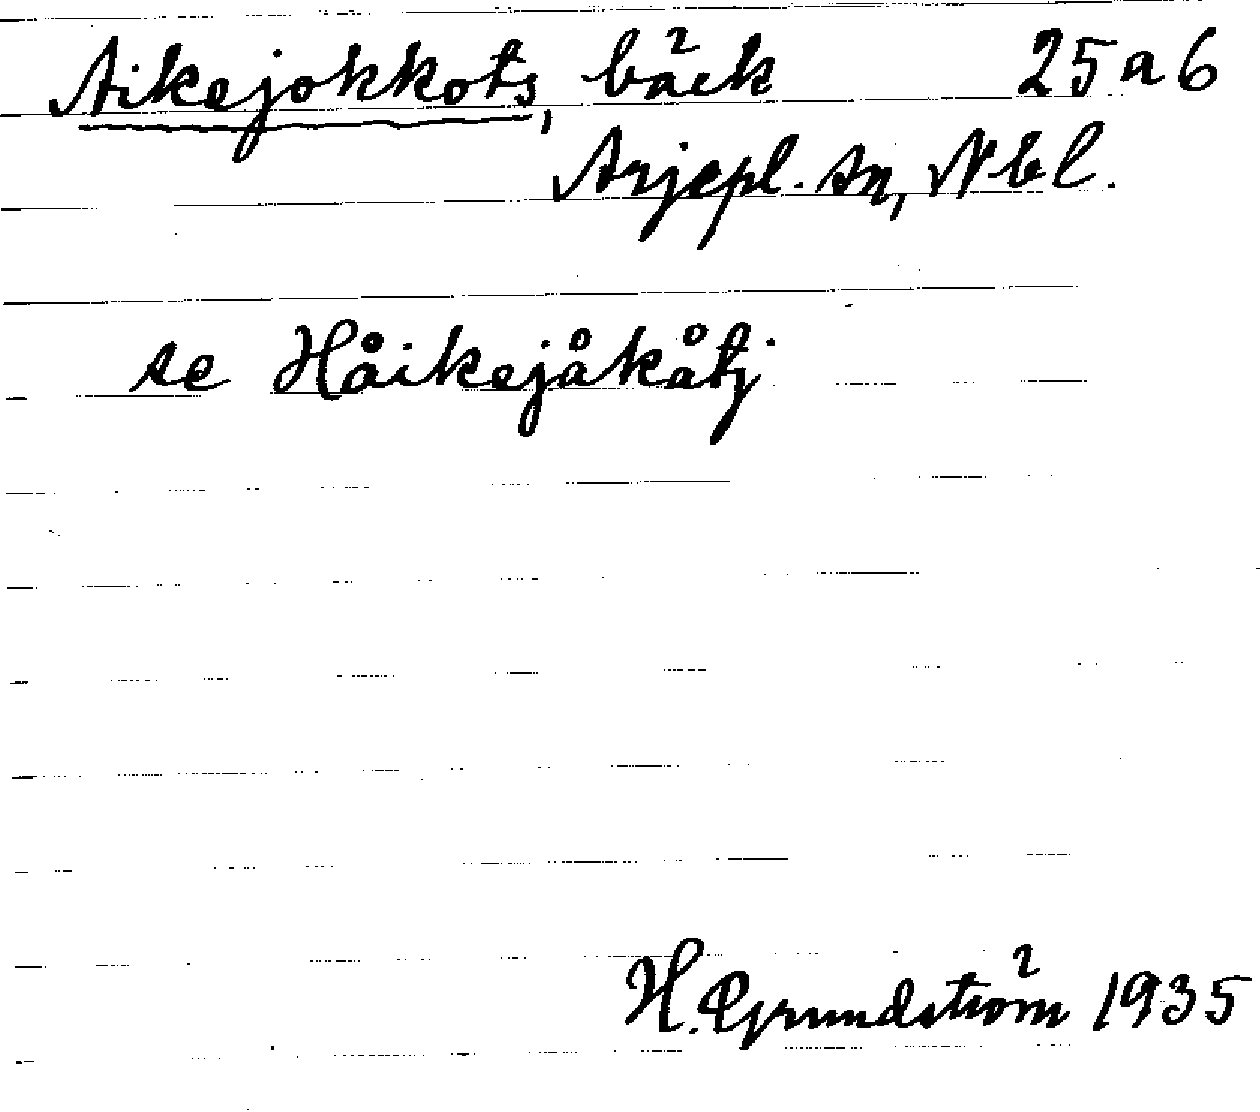 Aikejokkots, bäck 25 a 6
Arjepl. sn, Nbl.
se Håikejåkåtj
H. Grundström 1935